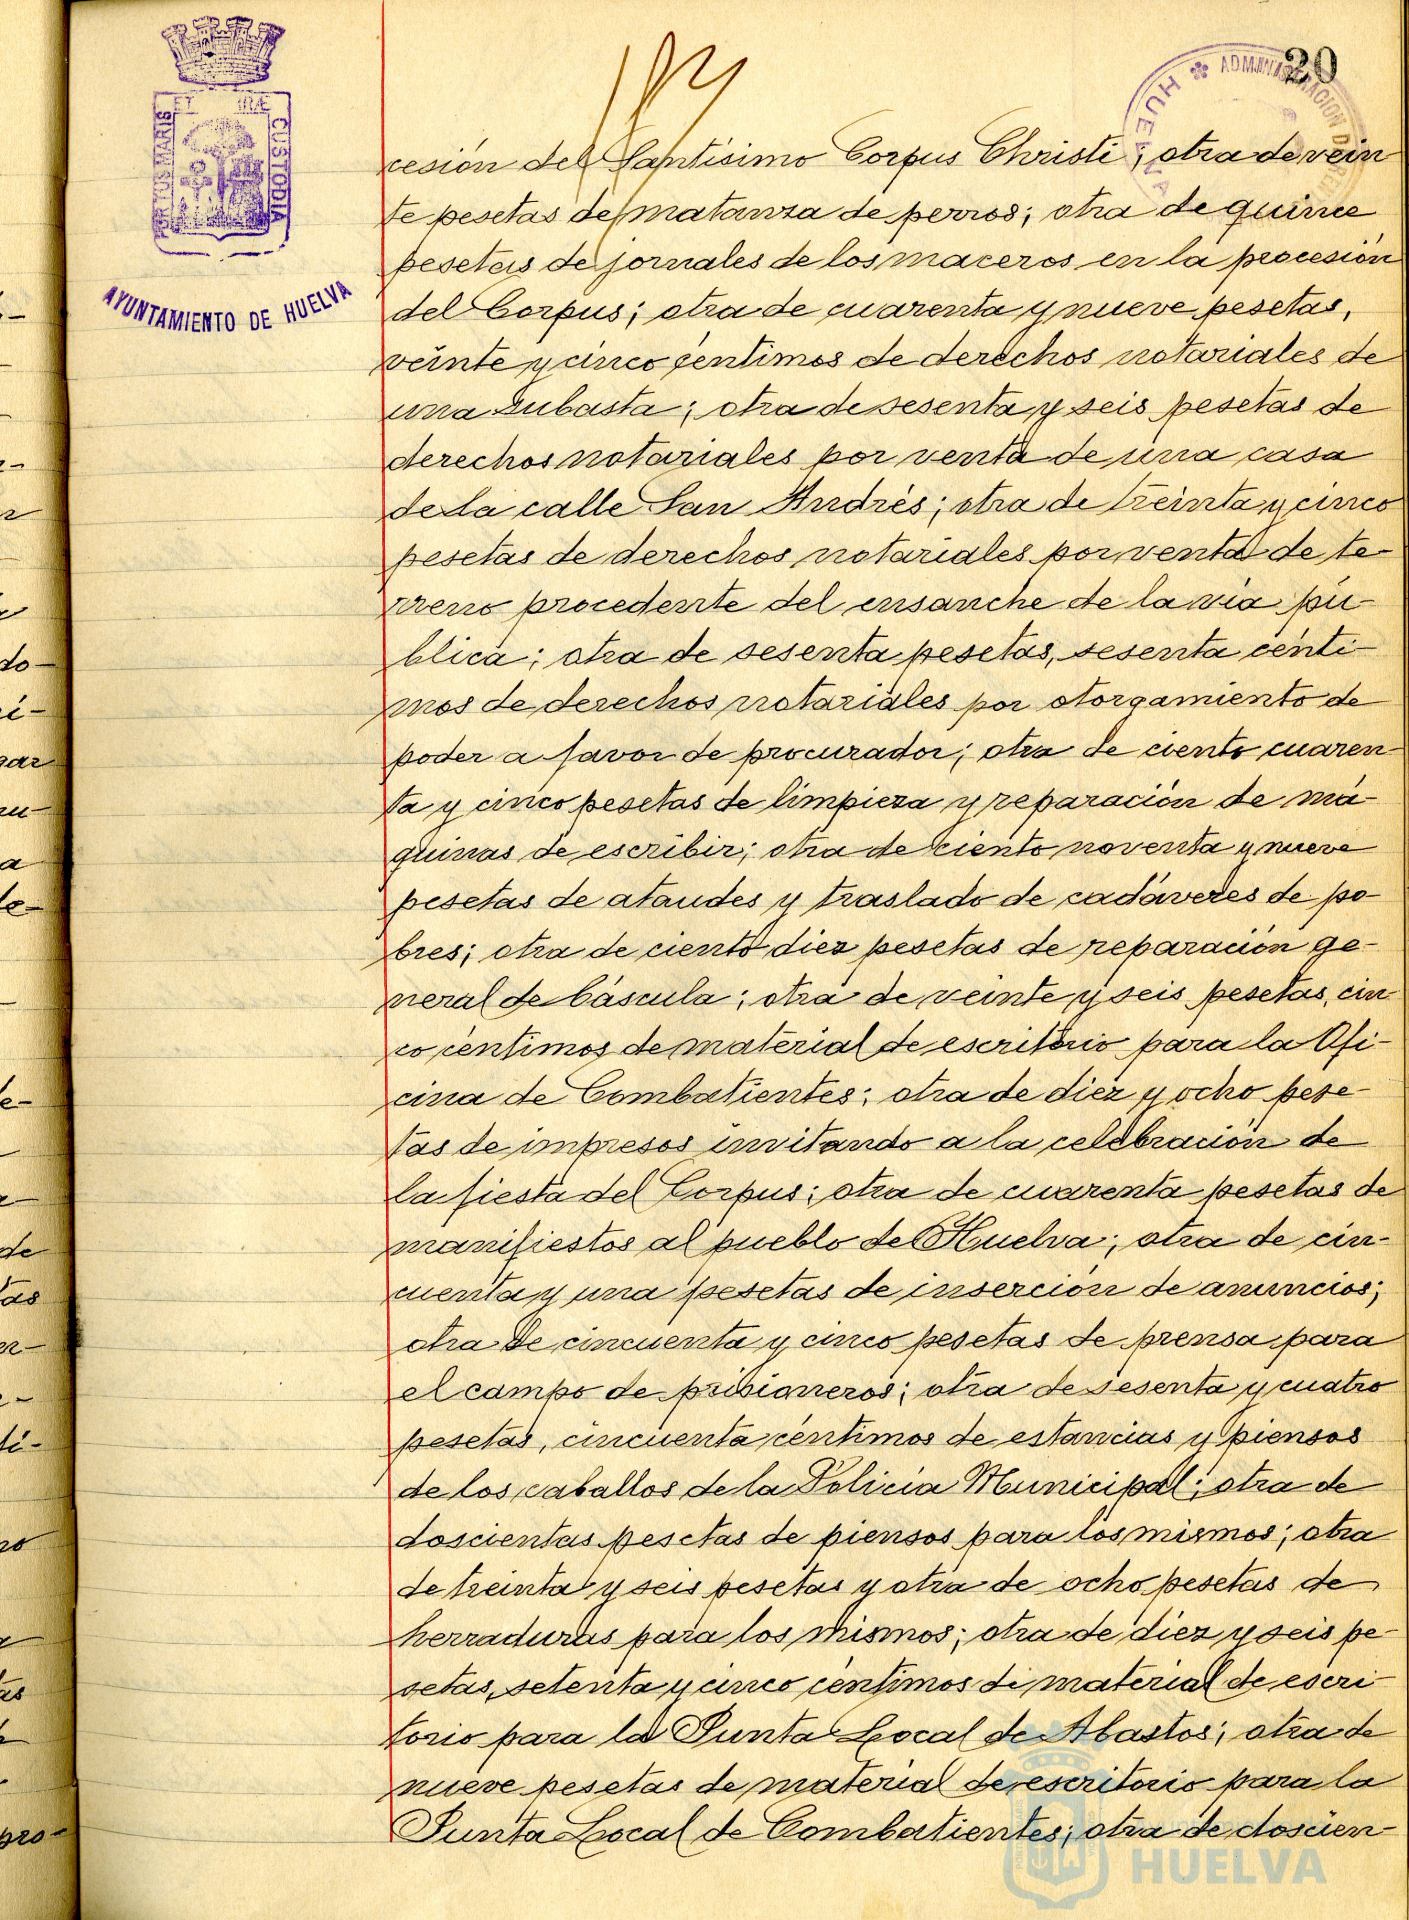 20
ADMINISTRACION DE REN
HUELVA
PORTUS MARIS ET TERRÆ CUSTODIA
AYUNTAMIENTO DE HUELVA
cesión del Santísimo Corpus Christi; otra de vein
te pesetas de matanza de perros; otra de quince
pesetas de jornales de los maceros en la procesión
del Corpus; otra de cuarenta y nueve pesetas,
veinte y cinco céntimos de derechos notariales de
una subasta; otra de sesenta y seis pesetas de
derechos notariales por venta de una casa
de la calle San Andrés; otra de treinta y cinco
pesetas de derechos notariales por venta de te-
rreno procedente del ensanche de la via pú-
blica; otra de sesenta pesetas, sesenta cénti-
mos de derechos notariales por otorgamiento de
poder a favor de procurador; otra de ciento cuaren-
ta y cinco pesetas de limpieza y reparación de má-
quinas de escribir; otra de ciento noventa y nueve
pesetas de ataudes y traslado de cadáveres de po-
bres; otra de ciento diez pesetas de reparación ge-
neral de báscula; otra de veinte y seis pesetas, cin
co céntimos de material de escritorio para la Ofi-
cina de Combatientes; otra de diez y ocho pese-
tas de impresos invitando a la celebración de
la fiesta del Corpus; otra de cuarenta pesetas de
manifiestos al pueblo de Huelva; otra de cin-
cuenta y una pesetas de inserción de anuncios;
otra de cincuenta y cinco pesetas de prensa para
el campo de prisioneros; otra de sesenta y cuatro
pesetas, cincuenta céntimos de estancias y piensos
de los caballos de la Policía Municipal; otra de
doscientas pesetas de piensos para los mismos; otra
de treinta y seis pesetas y otra de ocho pesetas de
herraduras para los mismos; otra de diez y seis pe-
setas, setenta y cinco céntimos de material de escri-
torio para la Junta Local de Abastos; otra de
nueve pesetas de material de escritorio para la
Junta Local de Combatientes; otra de doscien-
HUELVA